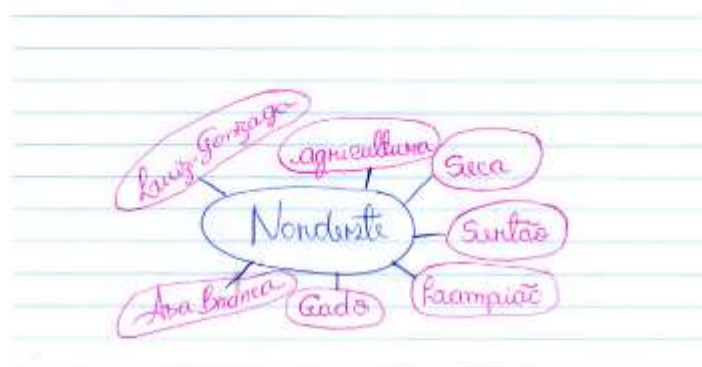 Luiz Gonzaga
Agricultura
Seca
Nordeste
Sertão
Asa Branca
Gado
Laampião